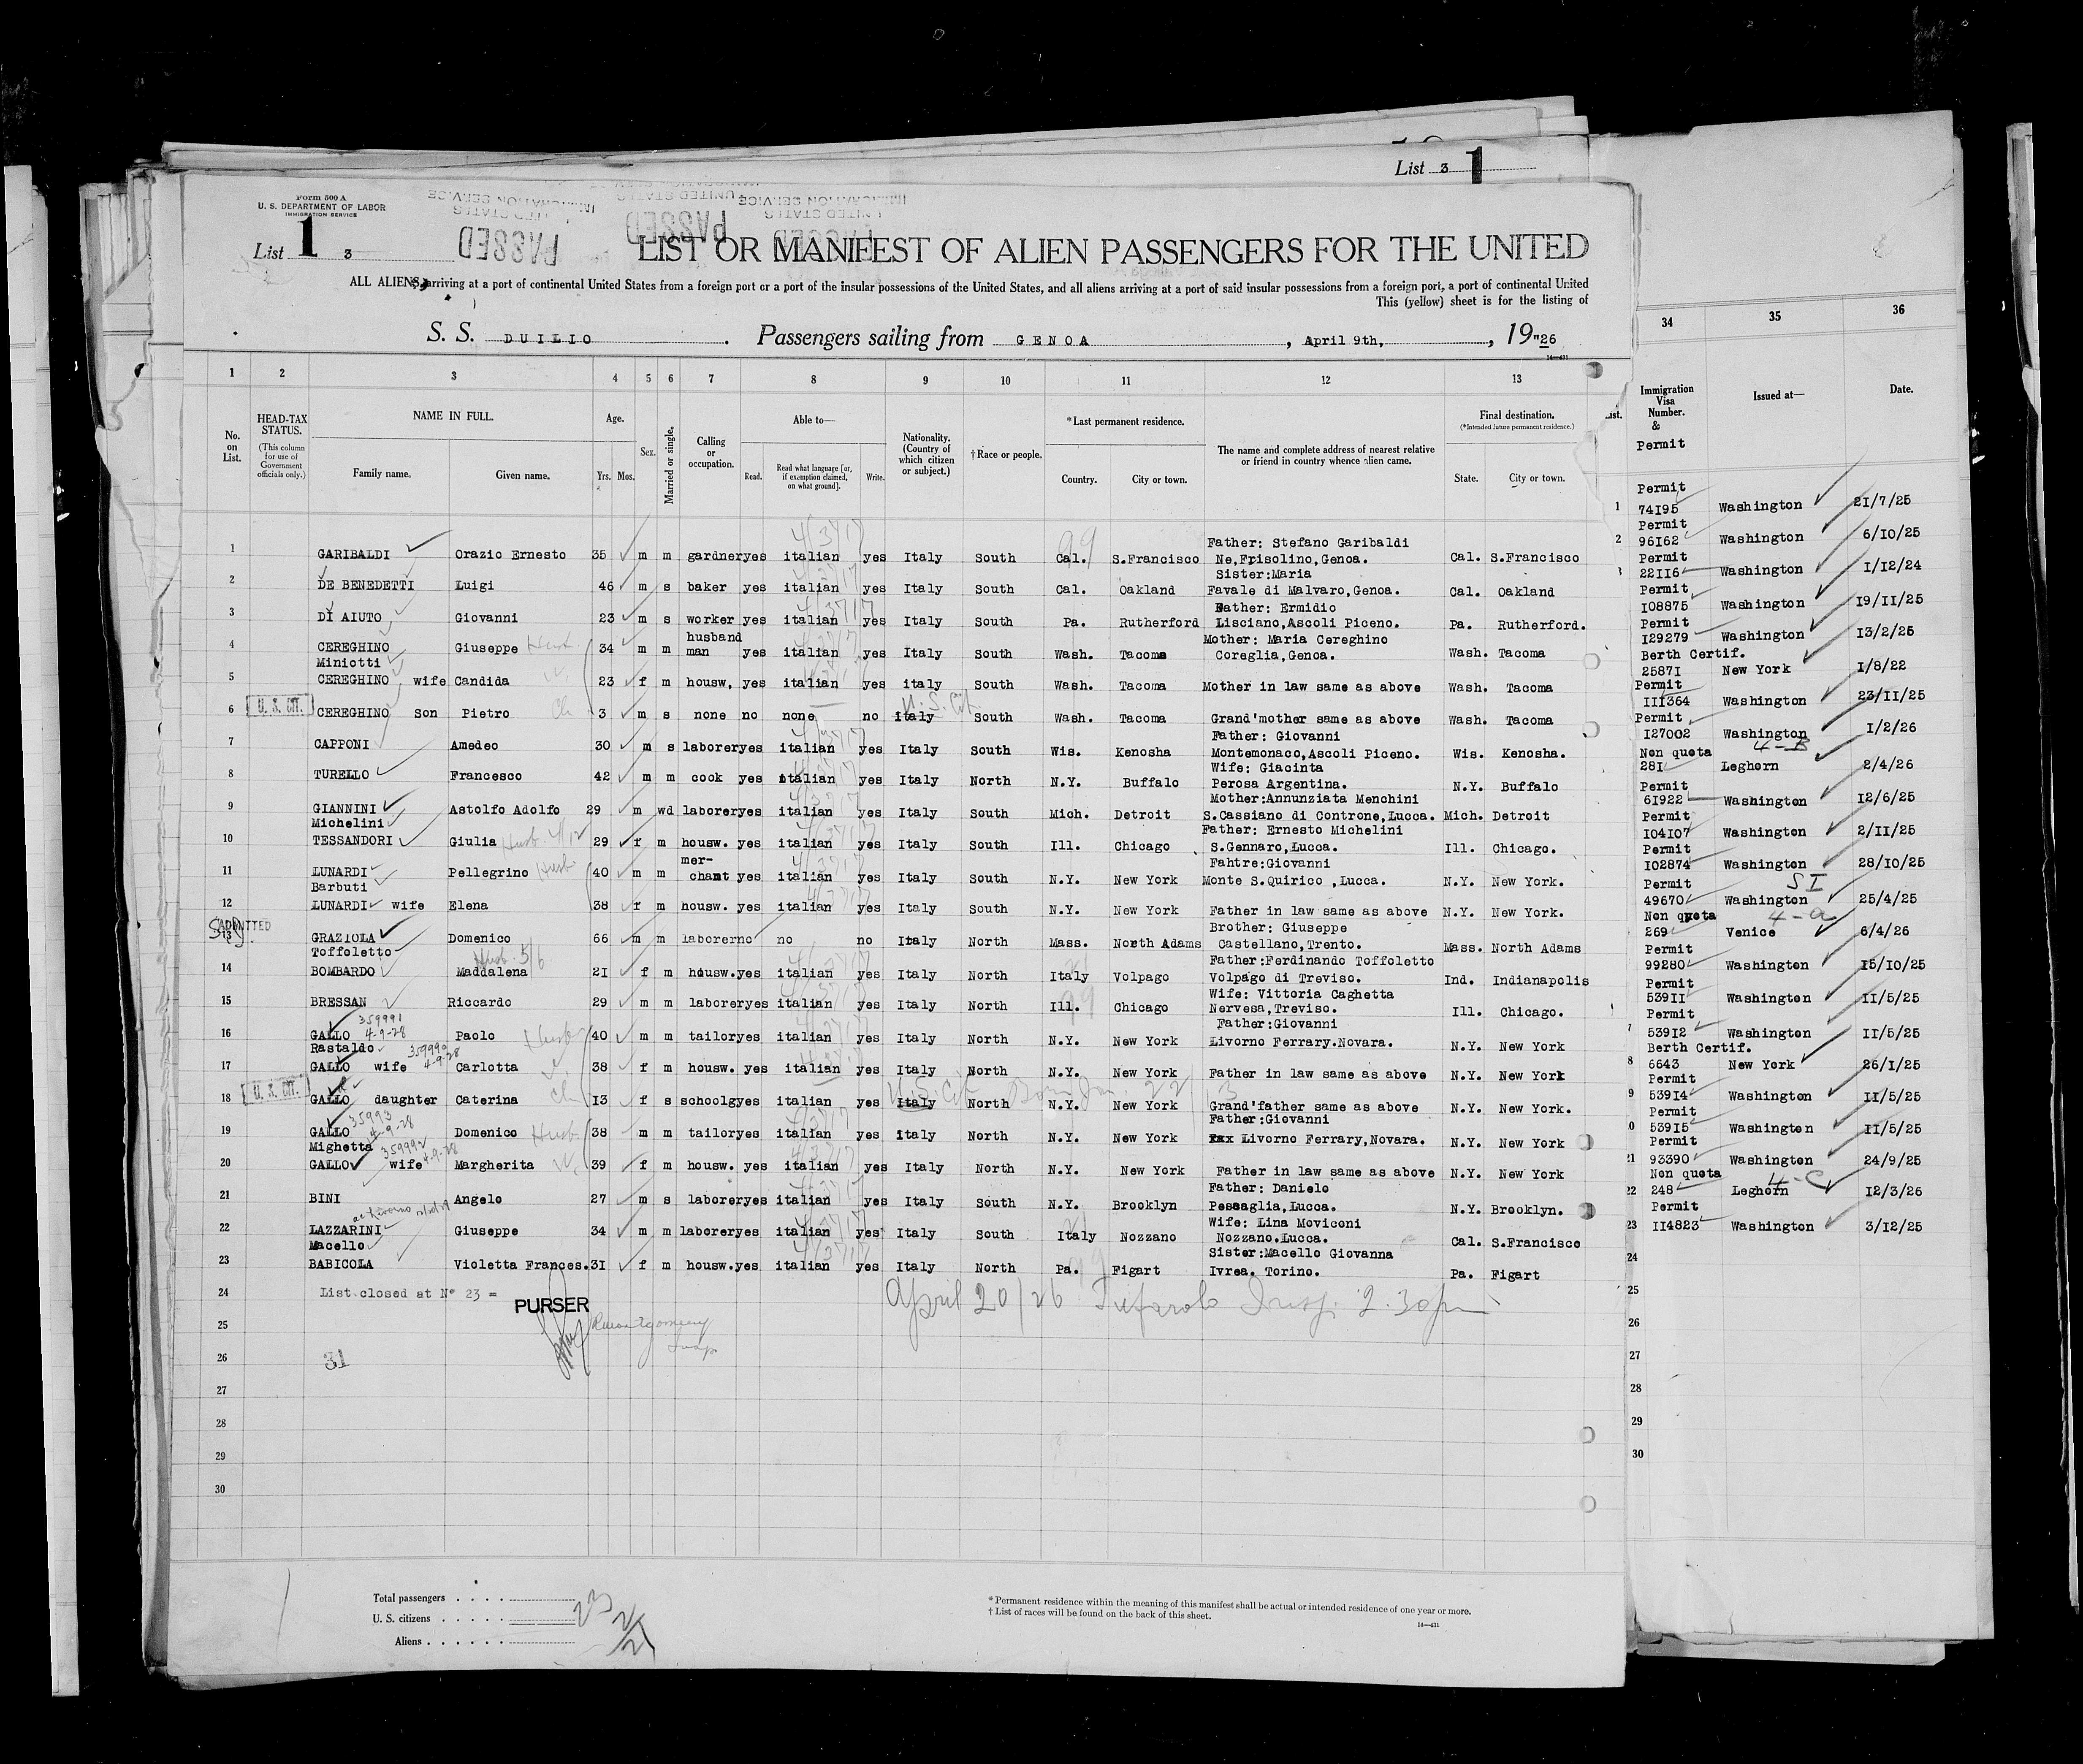 List 3 1
Form 500 A
U. S. DEPARTMENT OF LABOR
IMMIGRATION SERVICE
List 1 3
UNITED STATES IMMIGRATION SERVICE
PASSED PASSED
LIST OR MANIFEST OF ALIEN PASSENGERS FOR THE UNITED
ALL ALIENS arriving at a port of continental United States from a foreign port or a port of the insular possessions of the United States, and all aliens arriving at a port of said insular possessions from a foreign port, a port of continental United
This (yellow) sheet is for the listing of
S. S. DUILIO . Passengers sailing from GENOA , April 9th, , 19"26
14—431
1 2 3 4 5 6 7 8 9 10 11 12 13
No. on List.
HEAD-TAX STATUS.
(This column for use of Government officials only.)
NAME IN FULL.
Family name. Given name.
Age.
Yrs. Mos.
Sex.
Married or single.
Calling or occupation.
Able to—
Read. Read what language [or, if exemption claimed, on what ground]. Write.
Nationality. (Country of which citizen or subject.)
†Race or people.
*Last permanent residence.
Country. City or town.
The name and complete address of nearest relative or friend in country whence alien came.
Final destination.
(*Intended future permanent residence.)
State. City or town.
Father: Stefano Garibaldi
1 GARIBALDI Orazio Ernesto 35 m m gardner yes italian yes Italy South Cal. S.Francisco Ne,Frisolino,Genoa. Cal. S.Francisco
Sister:Maria
2 DE BENEDETTI Luigi 46 m s baker yes italian yes Italy South Cal. Oakland Favale di Malvaro,Genoa. Cal. Oakland
Father: Ermidio
3 DI AIUTO Giovanni 23 m s worker yes italian yes Italy South Pa. Rutherford Lisciano,Ascoli Piceno. Pa. Rutherford.
husband Mother: Maria Cereghino
4 CEREGHINO Giuseppe Husb 34 m m man yes italian yes Italy South Wash. Tacoma Coreglia,Genoa. Wash. Tacoma
Miniotti
5 CEREGHINO wife Candida 23 f m housw, yes italian yes italy South Wash. Tacoma Mother in law same as above Wash. Tacoma
U. S. Cit.
6 U. S. CIT. CEREGHINO son Pietro Ch 3 m s none no none no italy South Wash. Tacoma Grand'mother same as above Wash. Tacoma
Father: Giovanni
7 CAPPONI Amedeo 30 m s laborer yes italian yes Italy South Wis. Kenosha Montemonaco,Ascoli Piceno. Wis. Kenosha.
Wife: Giacinta
8 TURELLO Francesco 42 m m cook yes italian yes Italy North N.Y. Buffalo Perosa Argentina. N.Y. Buffalo
Mother:Annunziata Menchini
9 GIANNINI Astolfo Adolfo 29 m wd laborer yes italian yes Italy South Mich. Detroit S.Cassiano di Controne,Lucca. Mich. Detroit
Michelini Father: Ernesto Michelini
10 TESSANDORI Giulia Husb. 4/12 29 f m housw. yes italian yes Italy South Ill. Chicago S.Gennaro,Lucca. Ill. Chicago.
mer- Fahtre:Giovanni
11 LUNARDI Pellegrino Husb 40 m m chant yes italian yes Italy South N.Y. New York Monte S.Quirico ,Lucca. N.Y. New York.
Barbuti
12 LUNARDI wife Elena 38 f m housw. yes italian yes Italy South N.Y. New York Father in law same as above N.Y. New York.
ADMITTED Brother: Giuseppe
13 GRAZIOLA Domenico 66 m m laborer no no no Italy North Mass. North Adams Castellano,Trento. Mass. North Adams
Toffoletto Husb. 5/6 Father:Ferdinando Toffoletto
14 BOMBARDO Maddalena 21 f m housw. yes italian yes Italy North Italy Volpago Volpago di Treviso. Ind. Indianapolis
Wife: Vittoria Caghetta
15 BRESSAN Riccardo 29 m m laborer yes italian yes Italy North Ill. Chicago Nervesa,Treviso. Ill. Chicago.
359991 4-9-28 Father:Giovanni
16 GALLO Paolo Husb 40 m m tailor yes italian yes Italy North N.Y. New York Livorno Ferrary.Novara. N.Y. New York
Rastaldo 4-9-28
17 GALLO wife Carlotta 38 f m housw. yes italian yes Italy North N.Y. New York Father in law same as above N.Y. New York
U. S. Cit
18 U. S. CIT. GALLO daughter Caterina Ch 13 f s schoolg yes italian yes Italy North N.Y. New York Grand'father same as above N.Y. New York.
35993 4-9-28 Father:Giovanni
19 GALLO Domenico Husb 38 m m tailor yes italian yes italy North N.Y. New York Livorno Ferrary,Novara. N.Y. New York
Mighetta 359992 4-9-28
20 GALLO wife Margherita W. 39 f m housw. yes italian yes Italy North N.Y. New York Father in law same as above N.Y. New York
Father: Danielo
21 BINI Angelo 27 m s laborer yes italian yes Italy South N.Y. Brooklyn Pesaaglia,Lucca. N.Y. Brooklyn.
Wife: Lina Moviconi
22 LAZZARINI Giuseppe 34 m m laborer yes italian yes Italy South Italy Nozzano Nozzano.Lucca. Cal. S.Francisco
Macello Sister:Macello Giovanna
23 BABICOLA Violetta Frances. 31 f m housw. yes italian yes Italy North Pa. Figart Ivrea. Torino. Pa. Figart
24 List closed at N° 23 =
PURSER
April 20/26 Insp. 2.30pm
25 Montgomery
Insp
26 31
27
28
29
30
Total passengers . . . . 23
U. S. citizens . . . . . 2
Aliens . . . . . . 21
*Permanent residence within the meaning of this manifest shall be actual or intended residence of one year or more.
†List of races will be found on the back of this sheet.
14—431
34 35 36
Immigration Visa Number. & Permit
Issued at— Date.
Permit
1 74195 Washington 21/7/25
Permit
2 96162 Washington 6/10/25
Permit
3 22116 Washington 1/12/24
Permit
108875 Washington 19/11/25
Permit
129279 Washington 13/2/25
Berth Certif.
25871 New York 1/8/22
Permit
111364 Washington 23/11/25
Permit
127002 Washington 1/2/26
Non quota 4-B
281 Leghorn 2/4/26
Permit
61922 Washington 12/6/25
Permit
104107 Washington 2/11/25
Permit
102874 Washington 28/10/25
Permit S I
49670 Washington 25/4/25
Non quota 4-a
269 Venice 6/4/26
Permit
99280 Washington 15/10/25
Permit
53911 Washington 11/5/25
Permit
7 53912 Washington 11/5/25
Berth Certif.
8 6643 New York 26/1/25
Permit
9 53914 Washington 11/5/25
Permit
0 53915 Washington 11/5/25
Permit
21 93390 Washington 24/9/25
Non quota 4-C
22 248 Leghorn 12/3/26
Permit
23 114823 Washington 3/12/25
24
25
26
27
28
29
30